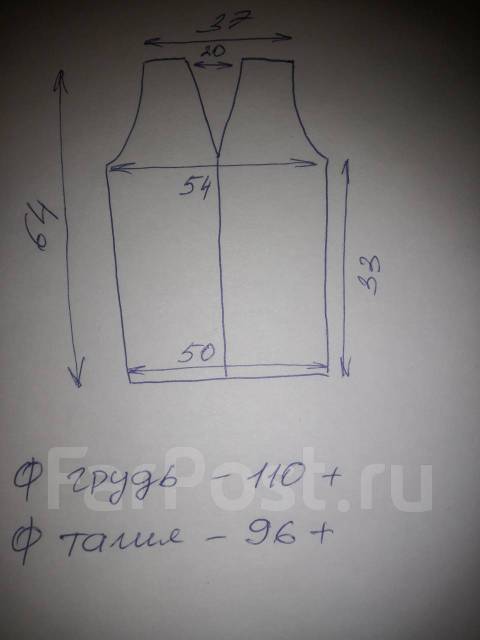 37
20
64
54
33
50
Ф грудь - 110 +
Ф талия - 96 +
FarPost.ru